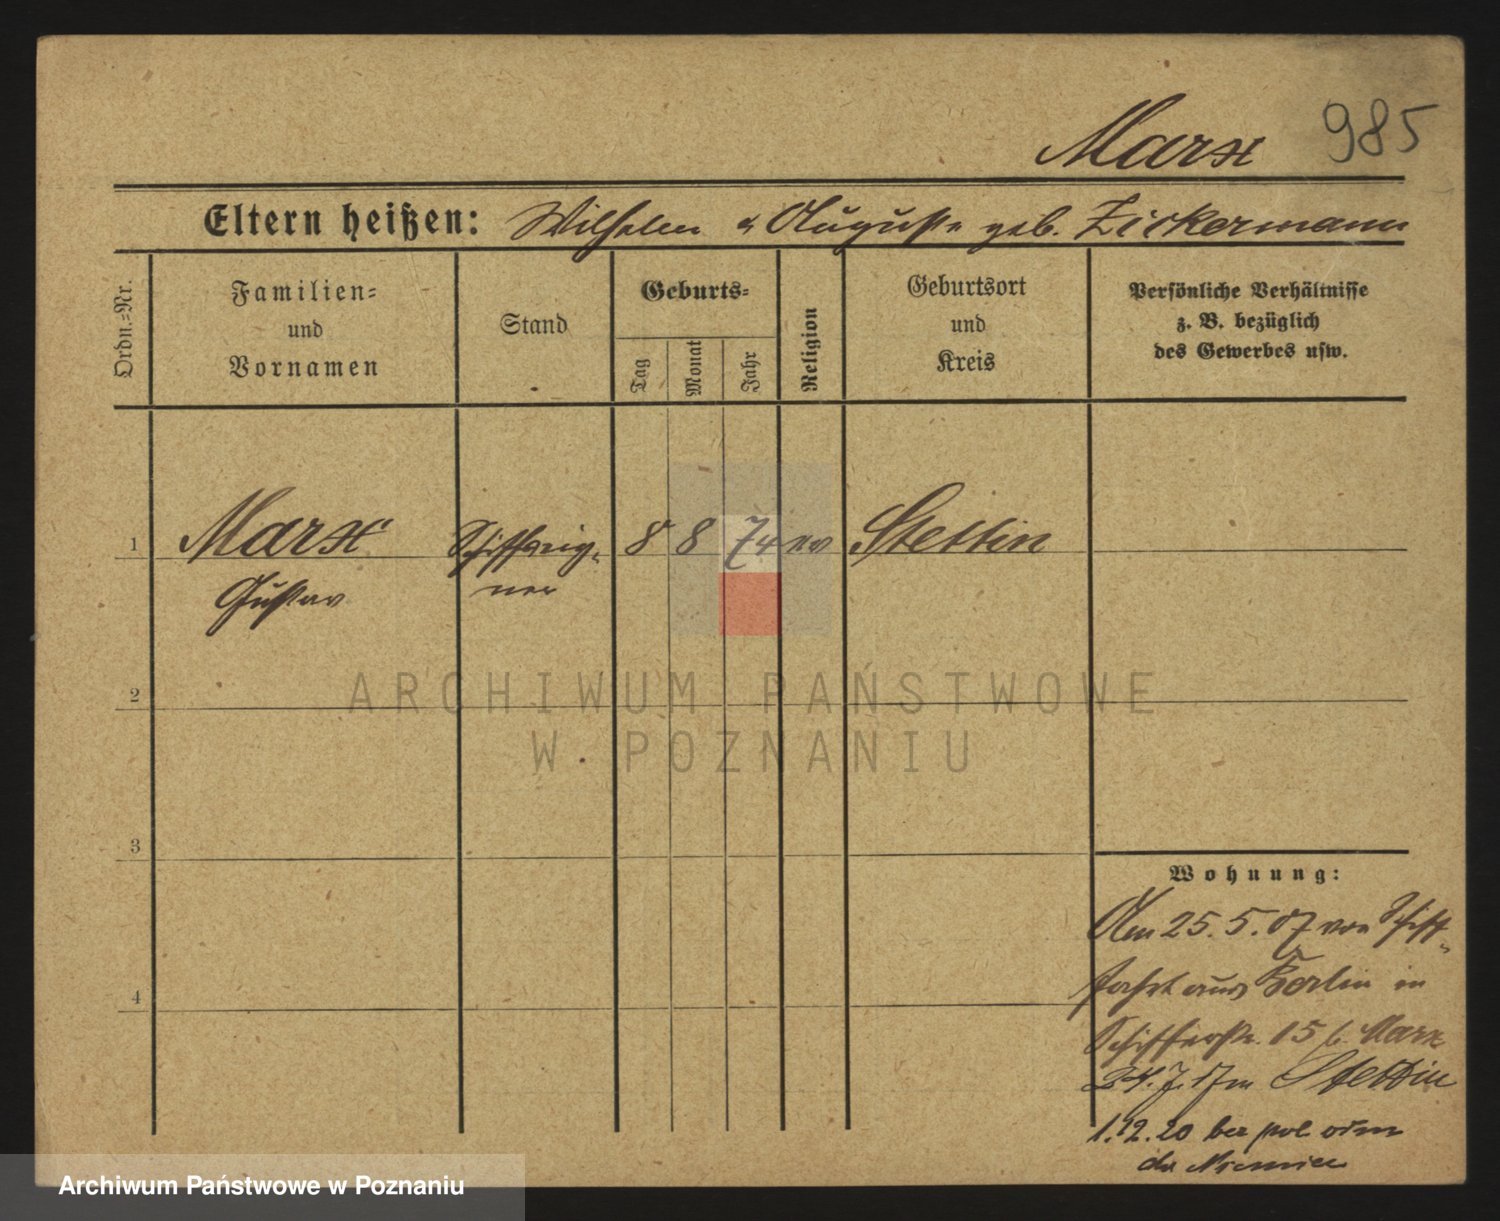 985
Marx
Eltern heißen: Wilhelm u Auguste geb. Zickermann
Ordn.=Nr.
Familien=
und
Vornamen
Stand
Geburts=
Tag
Monat
Jahr
Religion
Geburtsort
und
Kreis
Persönliche Verhältnisse
z. B. bezüglich
des Gewerbes usw.
1 Marx Schiffseig- 8 8 74 ev Stettin
Gustav ner
2
3
4
Wohnung:
Am 25.5.07 von Schiff-
fahrt aus Berlin in
Schifferstr. 15 b. Marx
24.7.17 in Stettin
1.12.20 bez pol
do Niemiec
ARCHIWUM PAŃSTWOWE
W POZNANIU
Archiwum Państwowe w Poznaniu